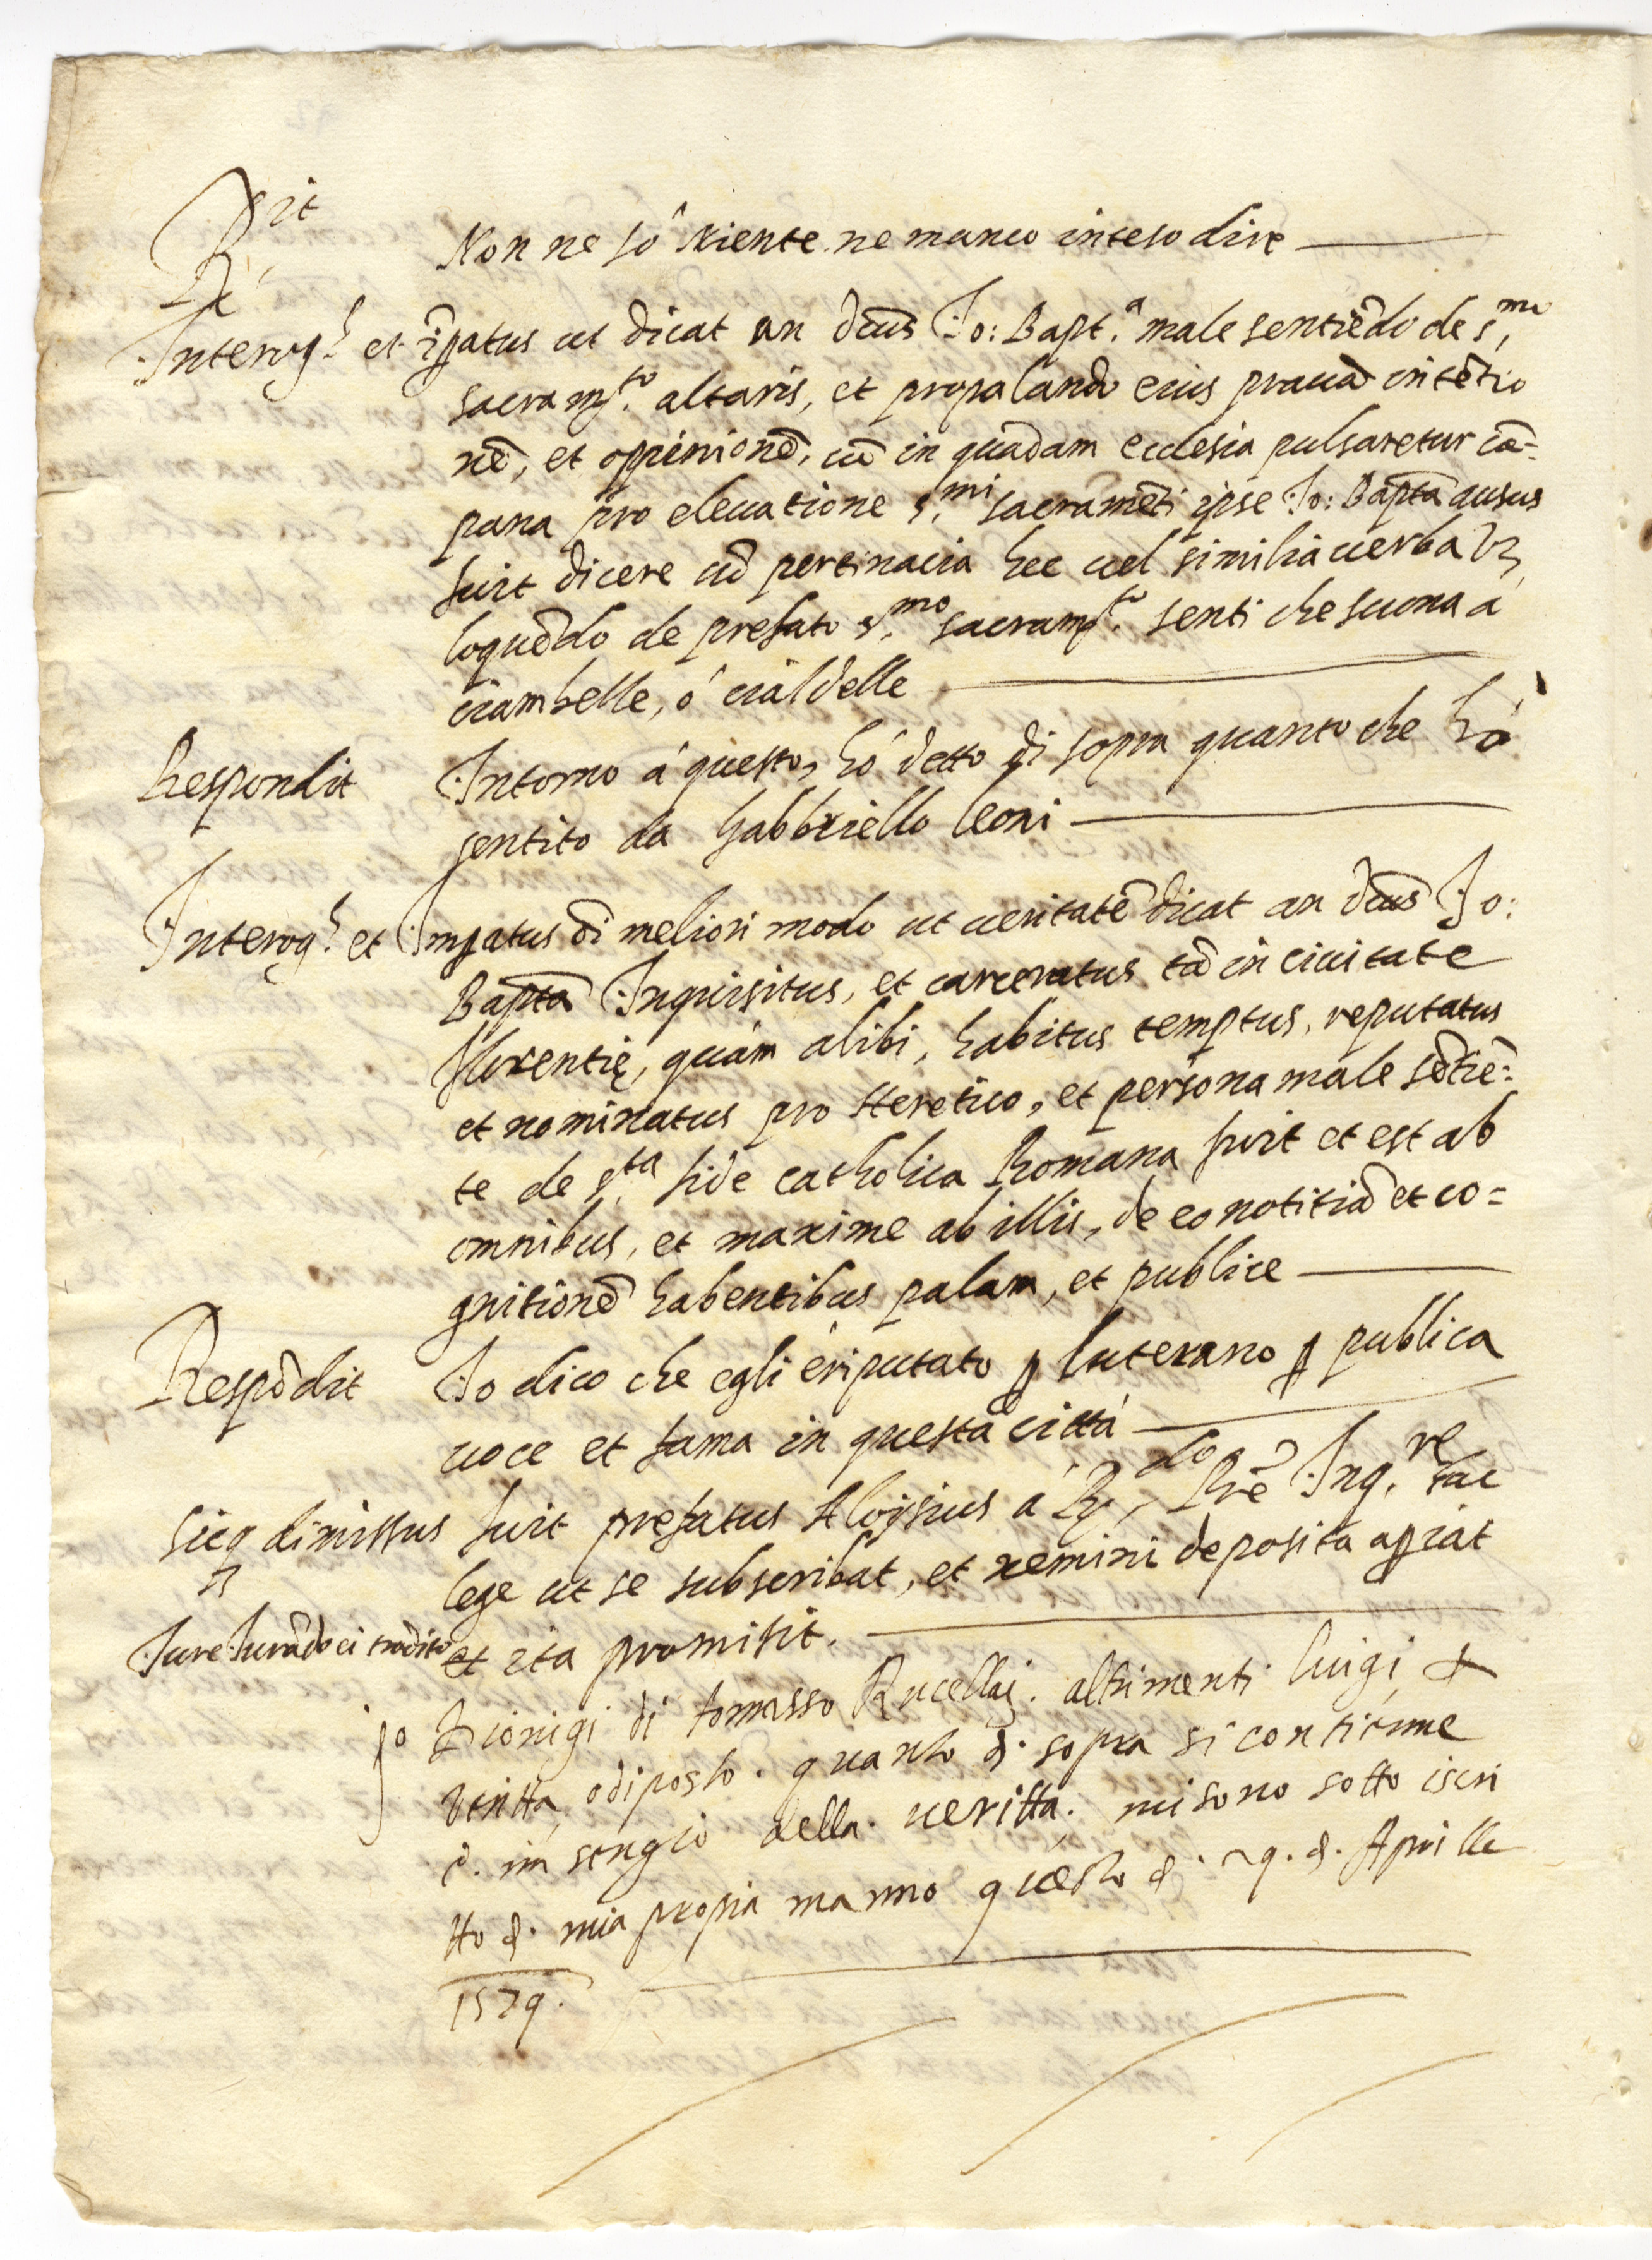 Rit
Non ne sò niente ne manco inteso dire
Interog.s et īpatus ut dicat an dictus Jo: Bapt.a male sentiēdo de s.mo
sacram.to altaris, et propalando eius prauā intētio
nē, et oppinionē, cū in quadam ecclesia pulsaretur cā=
pana pro eleuatione s.mi sacramēti ipse Jo: Bapta ausus
fuit dicere cū pertinacia hec uel similia uerba vz
loquēdo de prefato s.mo sacram.to senti che suona a
ciambelle, ó cialdelle
Respondit Intorno á questo, hó detto di sopra quanto che hó
sentito da Gabbriello Leoni
Interog.s et Impatus oī meliori modo ut ueritatē dicat an dictus Jo:
Bapta Inquisitus, et carceratus tā in ciuitate
Florentię, quám alibi, habitus temptus, reputatus
et nominatus pro Heretico, et persona male sētiē=
te de s.ta fide catholica Romana fuit et est ab
omnibus, et maxime ab illis, de eo notitiā et co=
gnitionē habentibus palam, et publice
Respōdit Io dico che egli é riputato p luterano p publica
uoce et fama in questa cittá
Sicq dimissus fuit prefatus Aloysius á R.do Prē Inq.re hac
lege ut se subscribat, et nemini deposita apiat
Jure Jurādo ei tradito et ita promisit.
jo Dionigi di tomasso Rucellaj. altrimenti luigi
ueritta, o diposto. quanto di sopra si contiene
e. in sengio della. ueritta. mi sono sotto iscri
tto di. mia propia manno questo di 29. di. Aprille
1579.